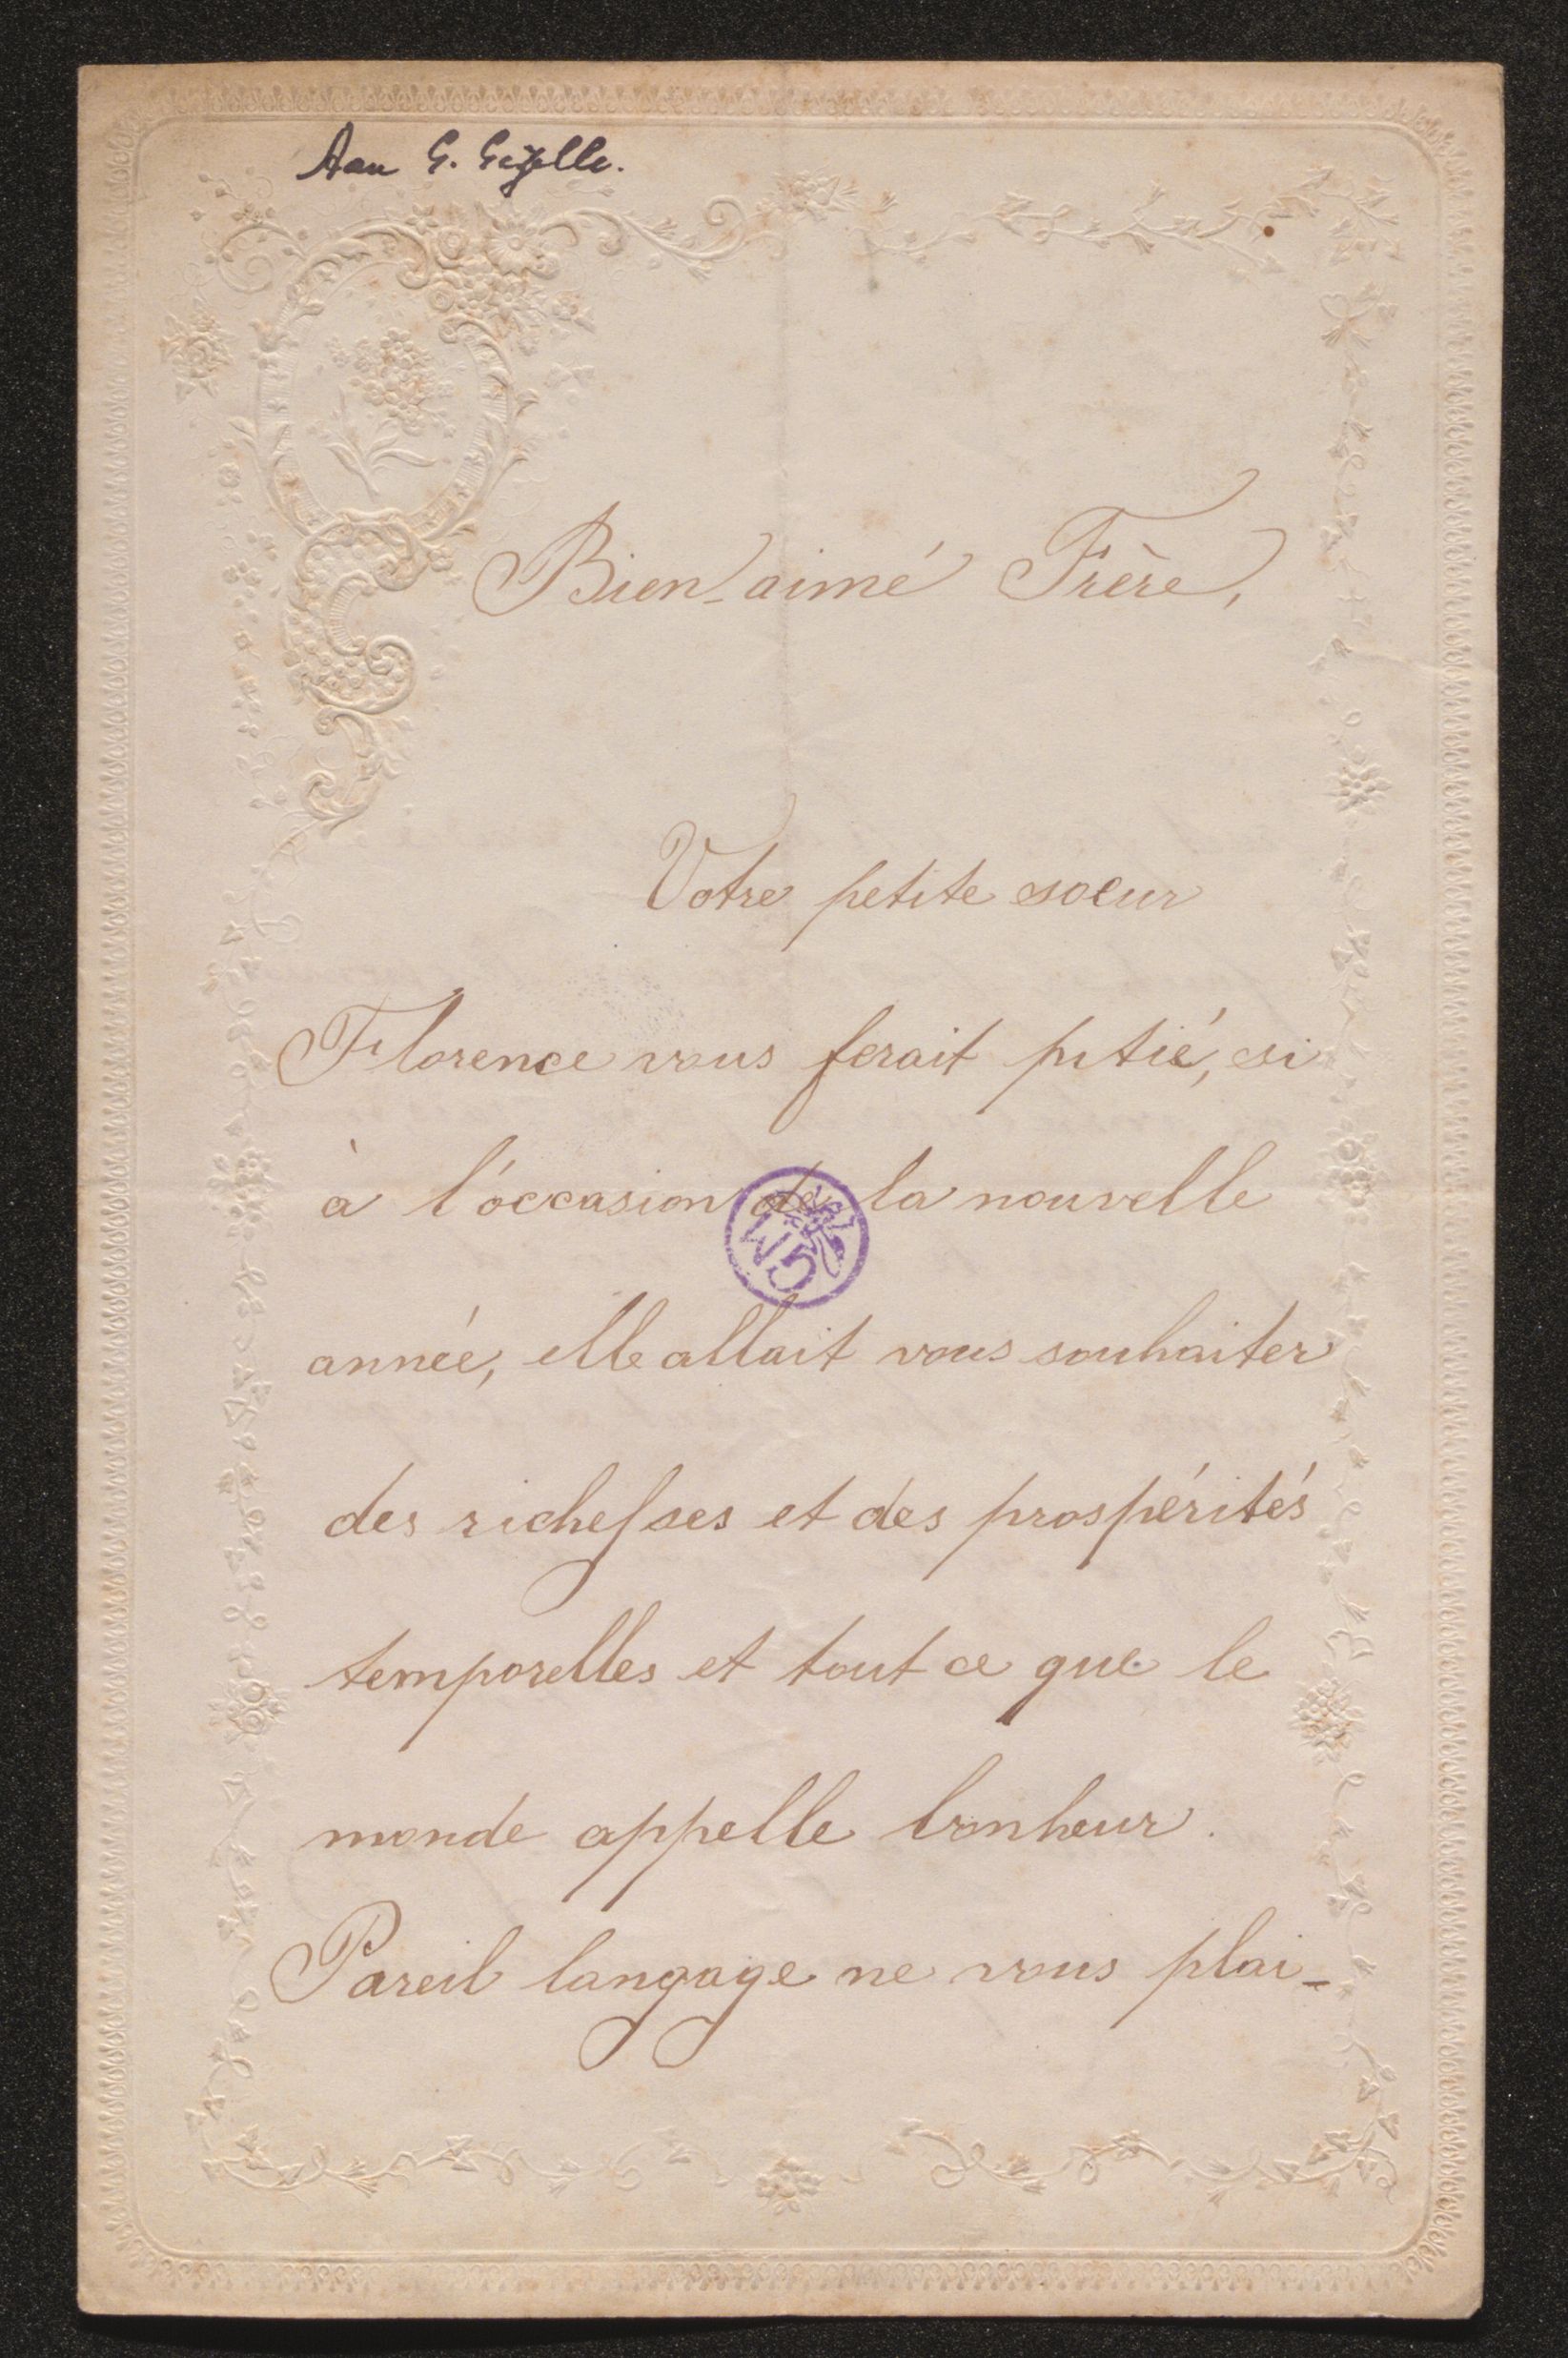 Aan G. Gezelle.
Bien-aimé Frère,
Votre petite soeur
Florence vous ferait pitié, si
à l'occasion de la nouvelle
année, elle allait vous souhaiter
des richesses et des prospérités
temporelles et tout ce que le
monde appelle bonheur.
Pareil langage ne vous plai-
GM